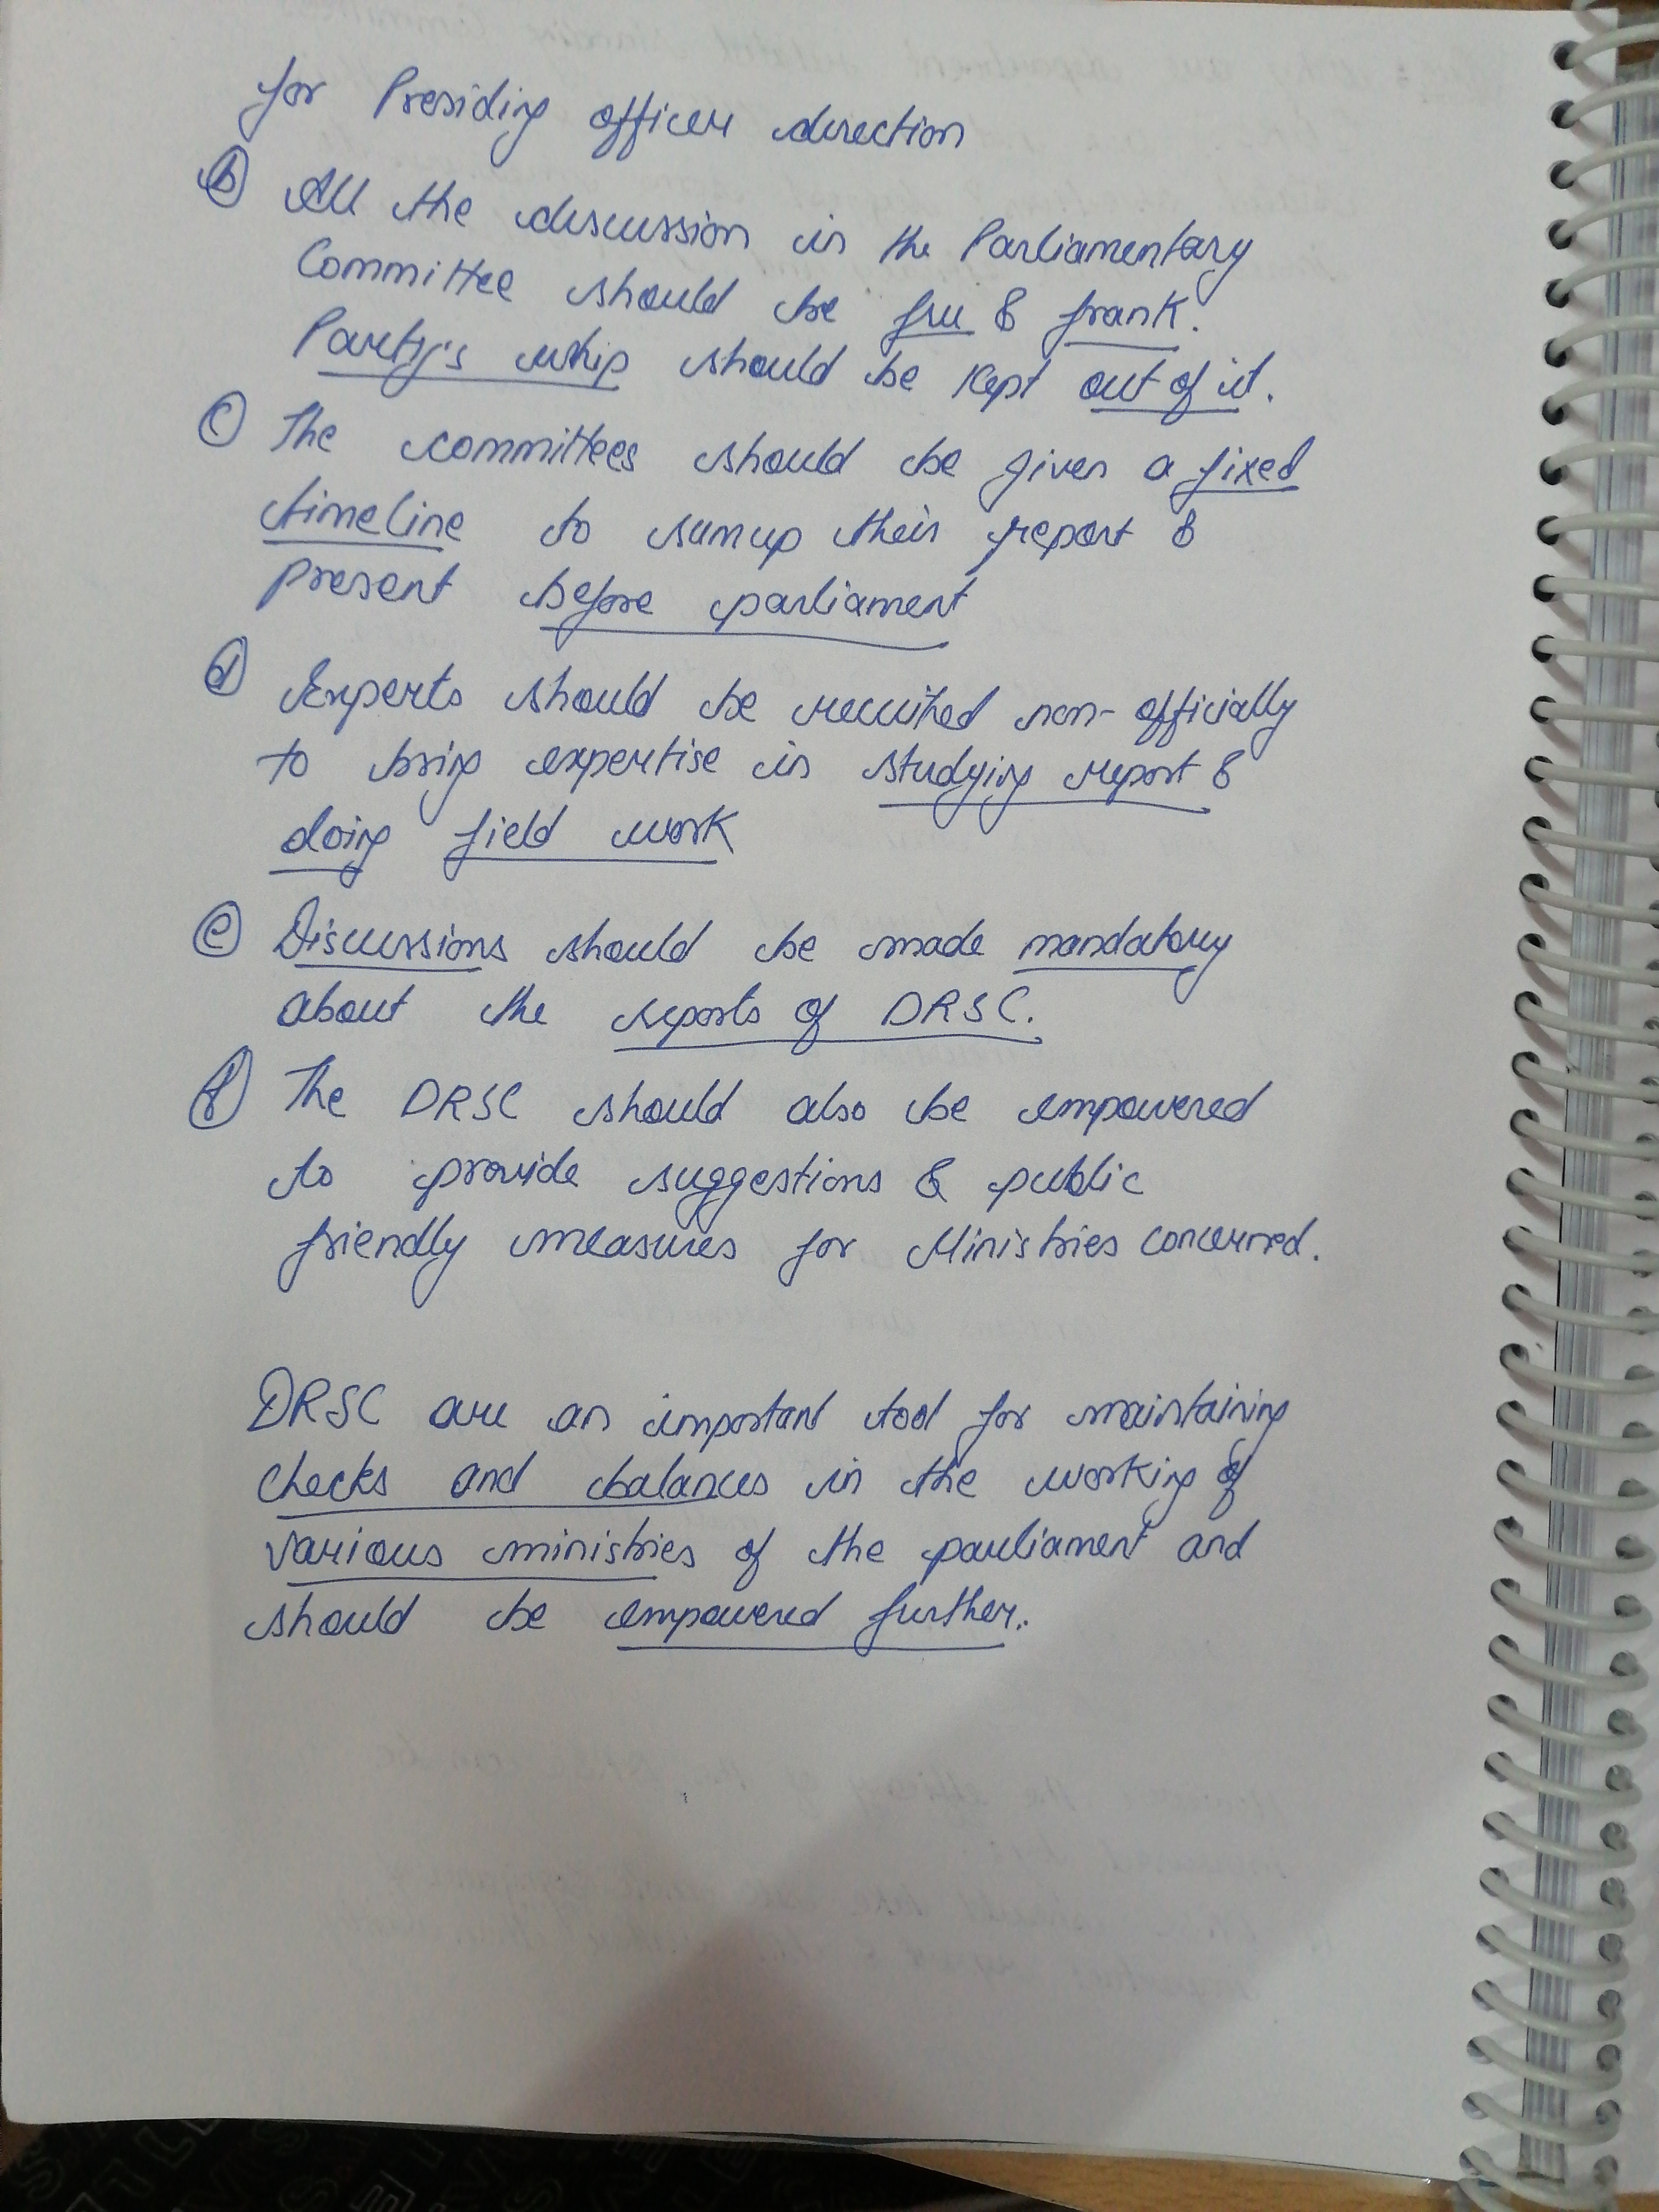 for Presiding officer direction
(b) All the discussion in the Parliamentary
Committee should be free & frank.
Party's whip should be kept out of it.
(c) The committees should be given a fixed
timeline to sumup their report &
present before parliament
(d) Experts should be recruited non-officially
to bring expertise in studying report &
doing field work
(e) Discussions should be made mandatory
about the reports of DRSC.
(f) The DRSC should also be empowered
to provide suggestions & public
friendly measures for Ministries concerned.
DRSC are an important tool for maintaining
checks and balances in the working of
various ministries of the parliament and
should be empowered further.